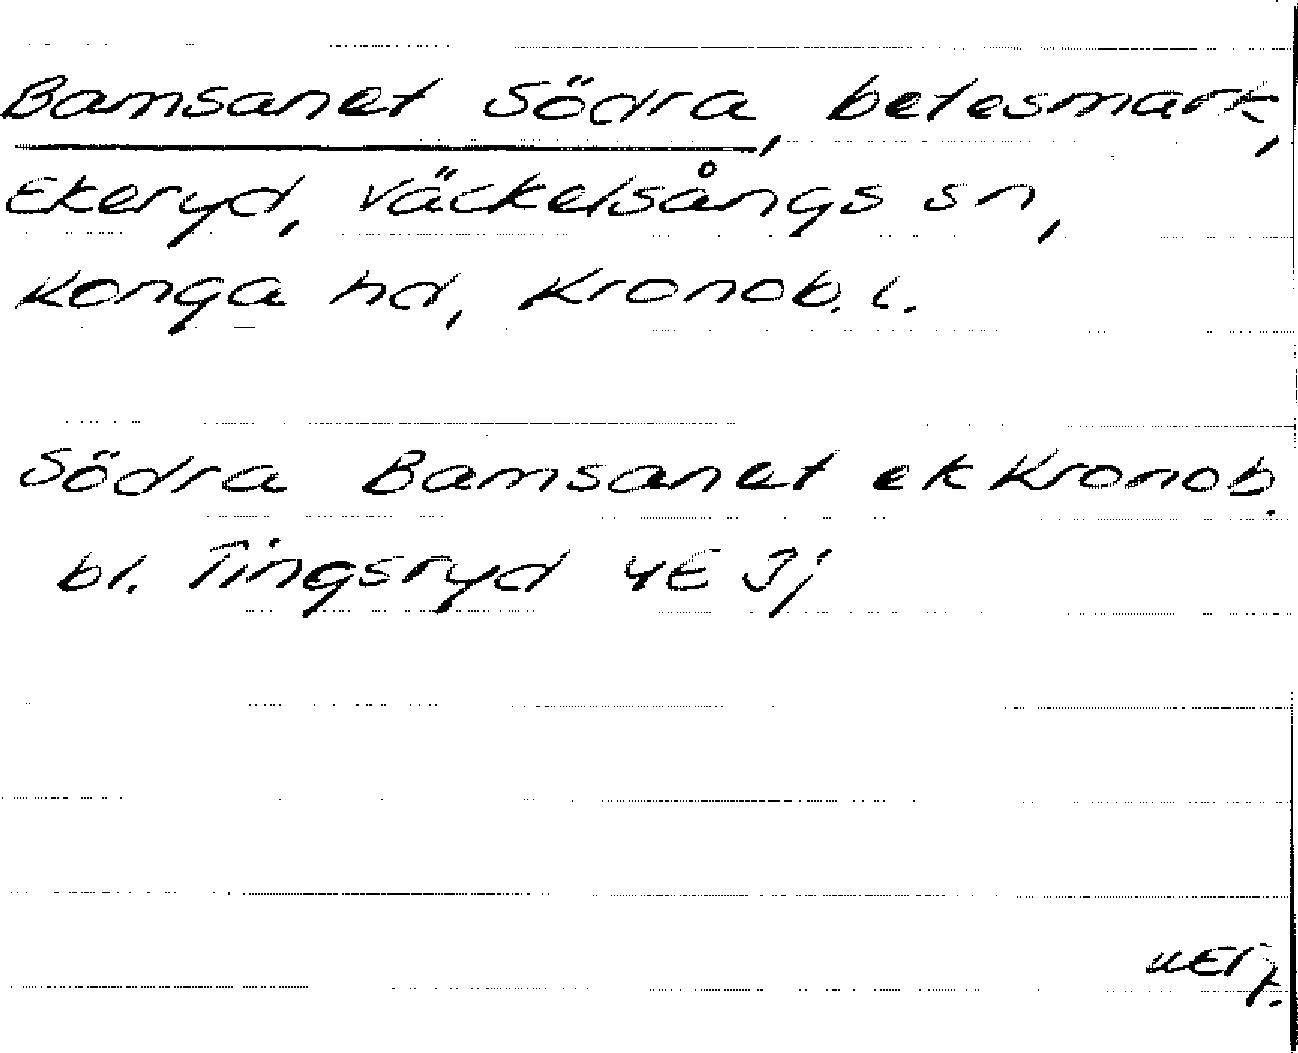 Bamsanet Södra, betesmark,
Ekeryd, Väckelsångs sn,
Konga hd, Kronob. l.
Södra Bamsanet ek Kronob.
bl. Tingsryd 4E Jj